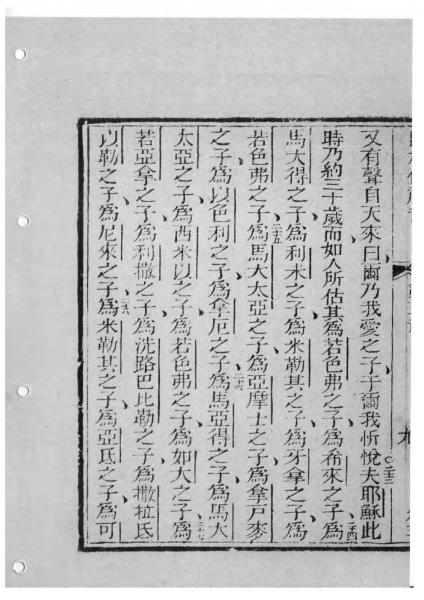 又有聲自天來曰爾乃我愛之子于爾我忻悅夫耶穌此
時乃約三十歲而如人所估其爲若色弗之子爲希來之子爲
馬大得之子爲利未之子爲米勒其之子爲牙拿之子爲
若色弗之子爲馬大太亞之子爲亞摩士之子爲拿戶麥
之子爲以色利之子爲拿厄之子爲馬亞得之子爲馬大
太亞之子爲西米以之子爲若色弗之子爲如大之子爲
若亞拿之子爲利撒之子爲洗路巴比勒之子爲撒拉氐
以勒之子爲尼來之子爲米勒其之子爲亞氐之子爲可